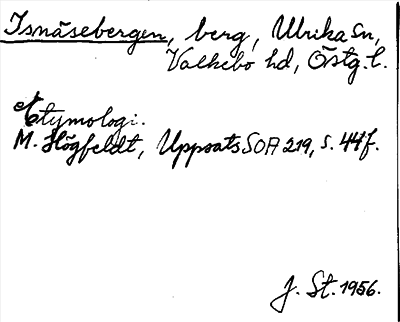 Isnäsebergen, berg, Ulrika sn,
Valkebo hd, Östg. l.
Etymologi.
M. Högfeldt, Uppsats SOA 219, s. 44 f.
J. St. 1956.